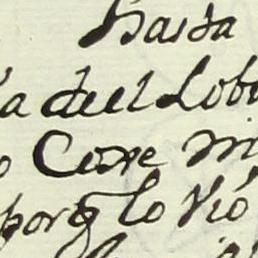 Hasta
a deel Lobo
o Cure mi
porq lo vió